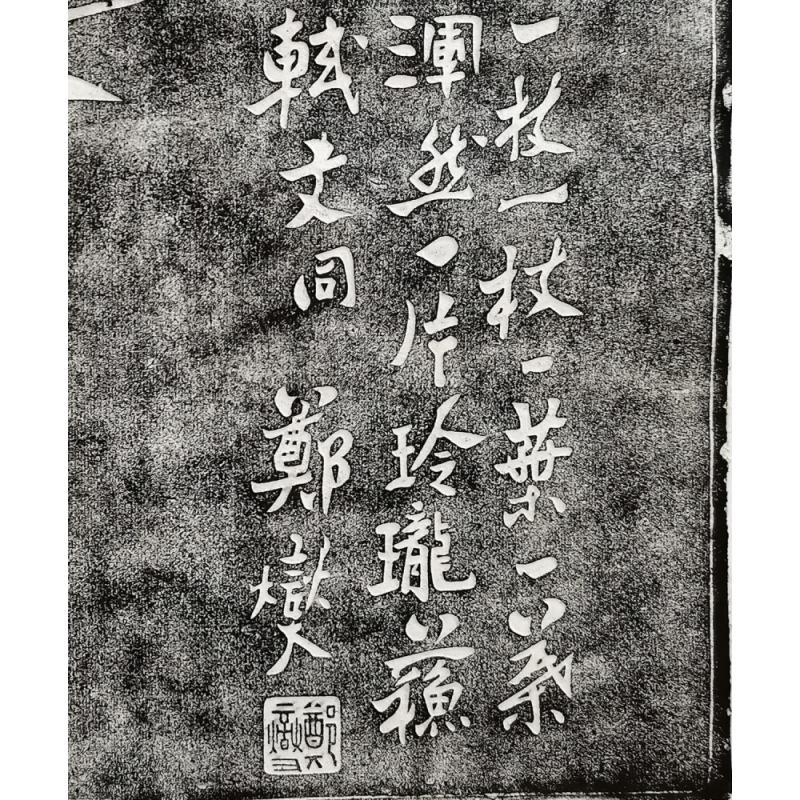 一枝一枝一葉一葉
渾然一片玲瓏蘇
軾文同
鄭燮
鄭燮